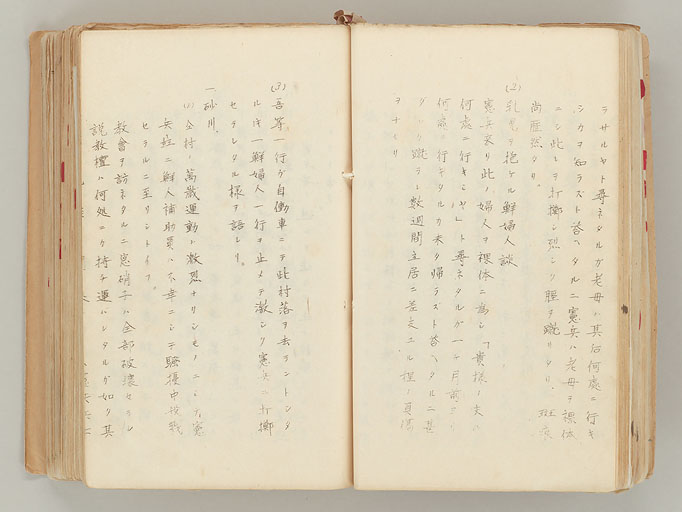 ラサルヤト尋ネタルガ老母ハ其后何處ニ行キ
シカヲ知ラズト答ヘタルニ憲兵ハ老母ヲ裸体
ニシ此レヲ打擲シ烈シク 蹴リシ 斑痕
尚歴然タリ。
(2) 乳児ヲ抱ケル鮮婦人談
憲兵来リ此ノ婦人ヲ裸体ニ為シ「貴様ノ夫ハ
何處ニ行キシヤ」ト尋ネタルガ一ケ月前
何處ニ行キタルカ未ダ帰ラズト答ヘタルニ甚
ク 蹴ラレ数週間立居ニ差支エル程ノ負傷
ヲナセリ
(3) 吾等一行ガ自働車ニテ此村落ヲ去ラントシタ
ルトキ一鮮婦人一行ヲ止メテ激シク憲兵ニ打擲
セラレタル様ヲ語レリ。
一、砂川、
(1) 全村ノ萬歳運動ト激烈ナリシモノニシテ憲
兵駐在ニ鮮人補助員ハ不幸ニシテ騒擾中投戟
セラルニ至リシトイフ。
教會ヲ訪ネタルニ窓硝子ハ全部破壊セラレ
説教檀ハ何処ニカ持チ運ハレタルガ如ク其